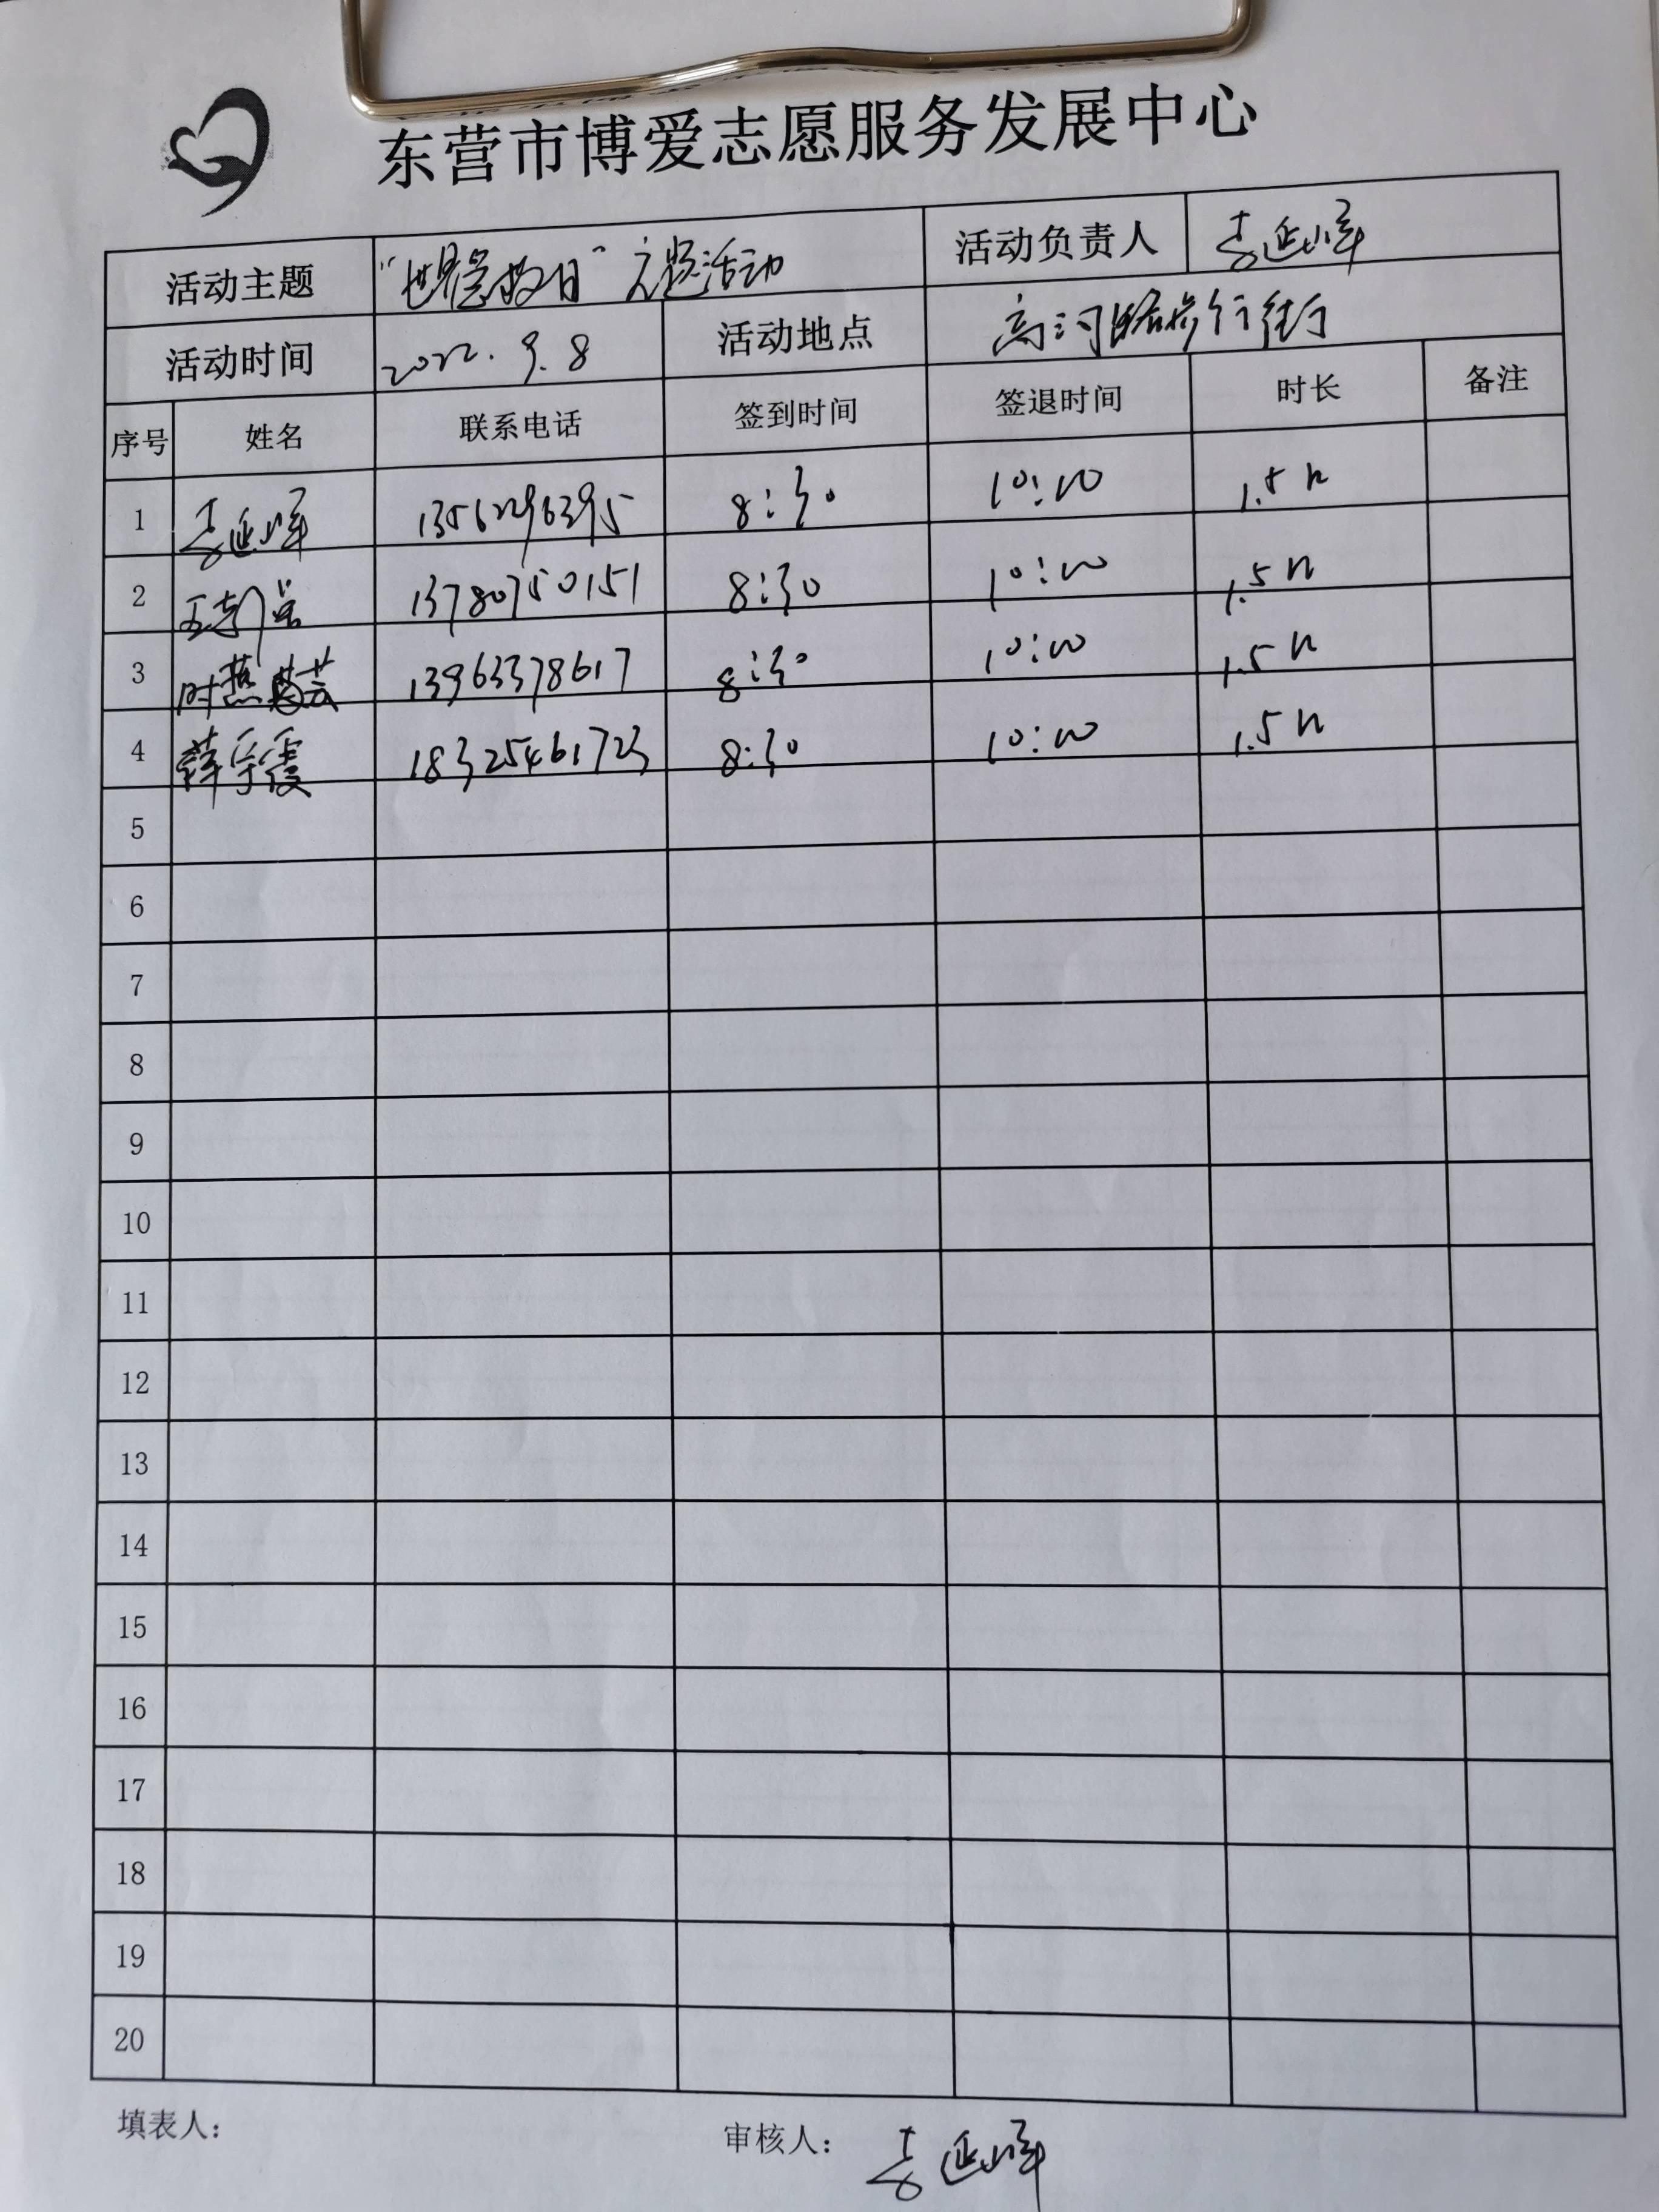 东营市博爱志愿服务发展中心
活动主题 "世界急救日"主题活动 活动负责人 李延峰
活动时间 2022.9.8 活动地点 高河路步行街
序号 姓名 联系电话 签到时间 签退时间 时长 备注
1 李延峰 13561296395 8:30 10:00 1.5h
2 13780750151 8:30 10:00 1.5h
3 时燕芸 13963378617 8:30 10:00 1.5h
4 薛宇霞 18325461723 8:30 10:00 1.5h
5
6
7
8
9
10
11
12
13
14
15
16
17
18
19
20
填表人： 审核人： 李延峰